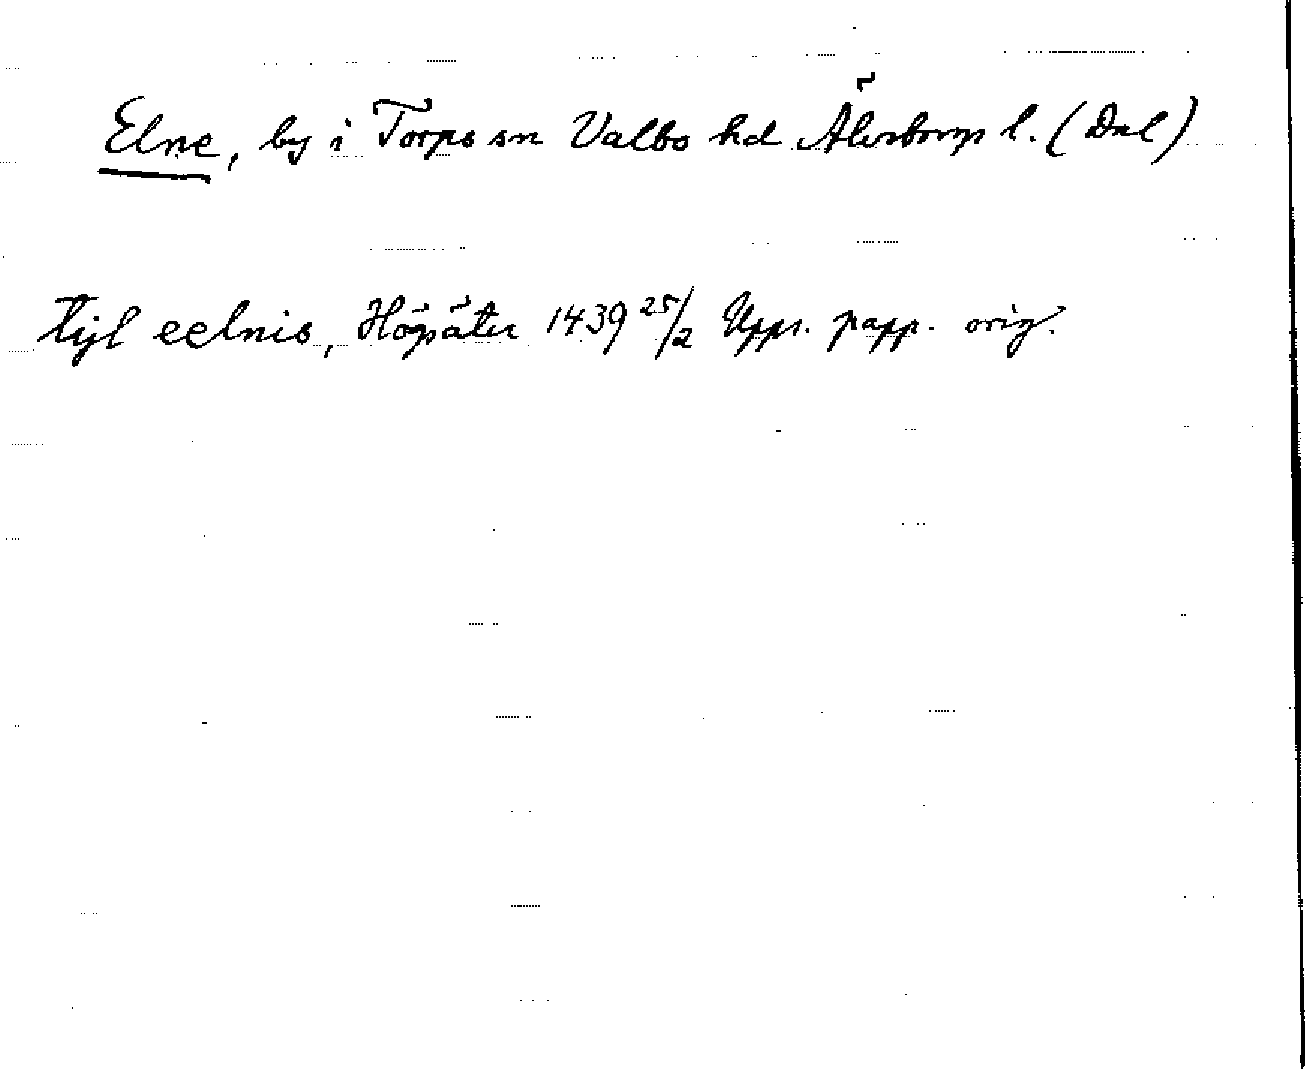 Elne, by i Torps sn Valbo hd Älvsborgs l. (Dal)
tijl eelnis, Högsäter 1439 25/2 Upps. papp. orig.